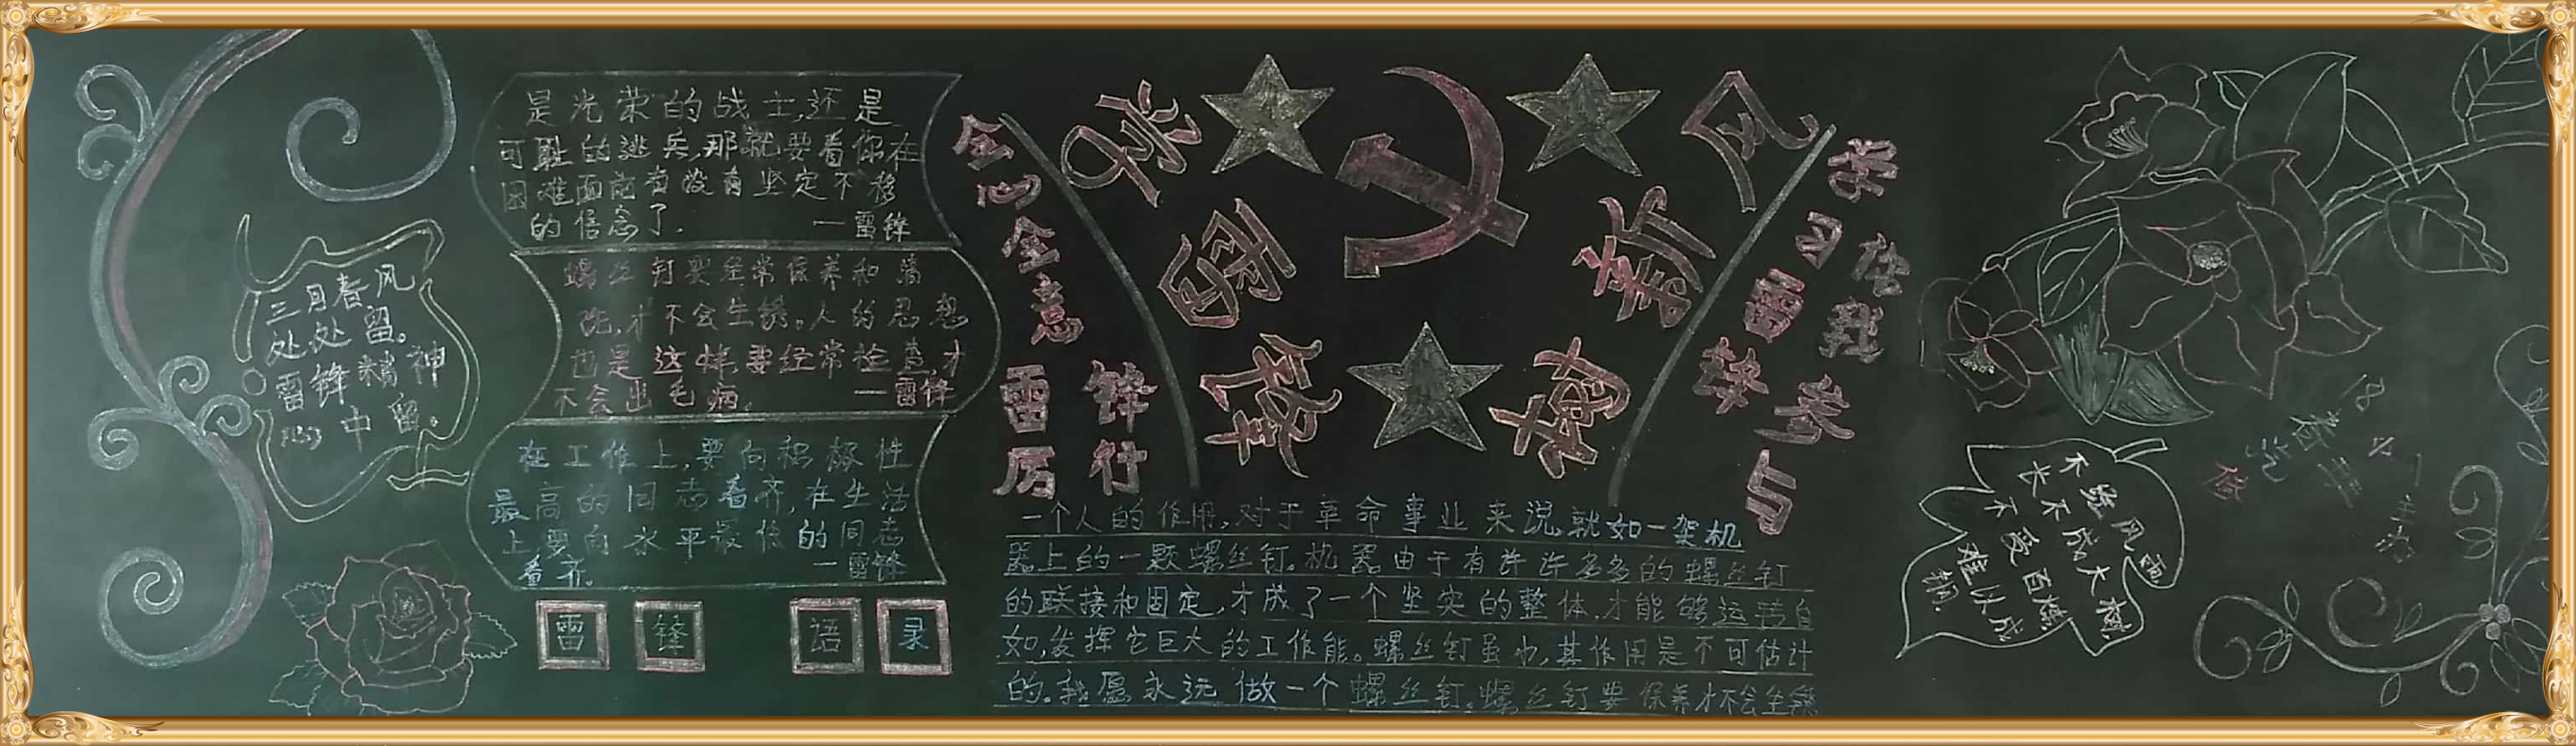 三月春风
处处留。
雷锋精神
心中留。
是光荣的战士,还是
可耻的逃兵,那就要看你在
困难面前有没有坚定不移
的信念了.
—雷锋
螺丝钉要经常保养和清
洗,才不会生锈。人的思想
也是这样要经常检查,才
不会出毛病.
—雷锋
在工作上,要向积极性
最高的同志看齐,在生活
上要向水平最低的同志
看齐.
—雷锋
雷锋语录
全心全意
雷厉
锋行
学雷锋
树新风
学习雷锋
你我参与
一个人的作用,对于革命事业来说,就如一架机
器上的一颗螺丝钉。机器由于有许许多多的螺丝钉
的联接和固定,才成了一个坚实的整体,才能够运转自
如,发挥它巨大的工作能。螺丝钉虽小,其作用是不可估计
的。我愿永远做一个螺丝钉。螺丝钉要保养才不会生锈
不经风雨
长不成大树
不受百炼
难以成
钢.